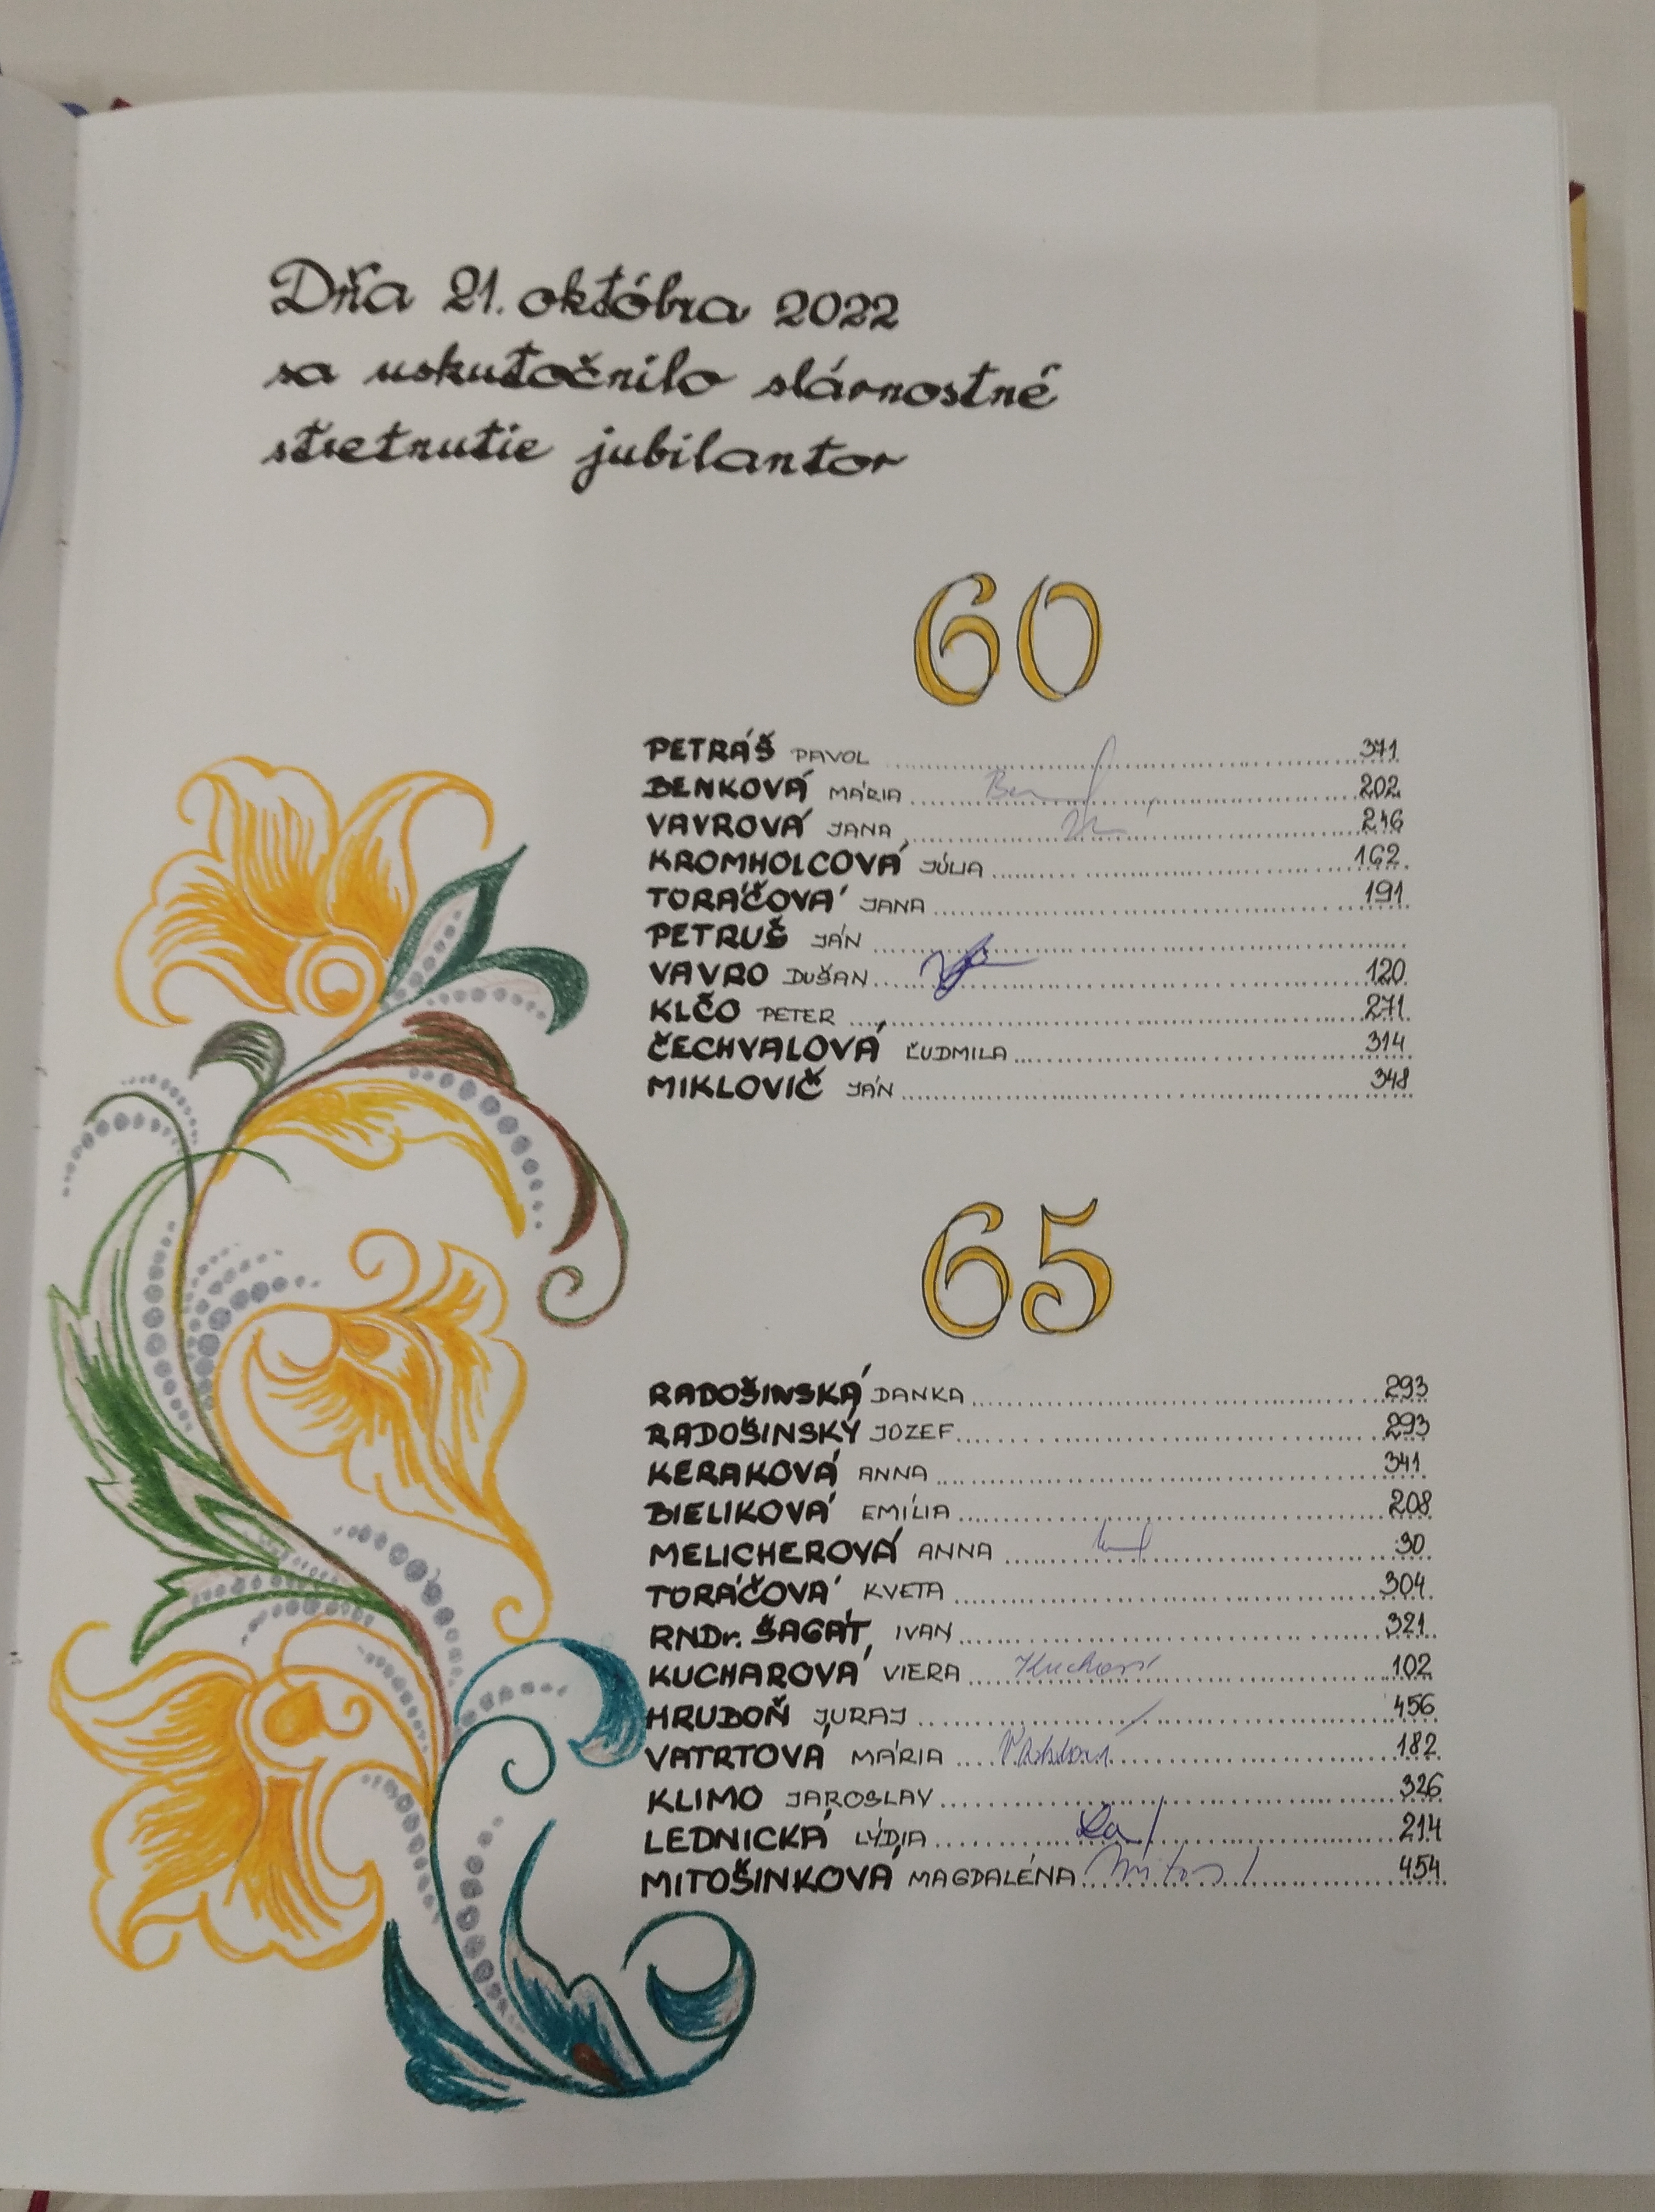 Dňa 21. októbra 2022
sa uskutočnilo slávnostné
stretnutie jubilantov
60
PETRÁŠ PAVOL 371
BENKOVÁ MÁRIA 202
VAVROVÁ JANA 246
KROMHOLCOVÁ JÚLIA 162
TORÁČOVÁ JANA 191
PETRUŠ JÁN
VAVRO DUŠAN 120
KLČO PETER 271
ČECHVALOVÁ ĽUDMILA 314
MIKLOVIČ JÁN 348
65
RADOŠINSKÁ DANKA 293
RADOŠINSKÝ JOZEF 293
KERAKOVÁ ANNA 341
BIELIKOVÁ EMÍLIA 208
MELICHEROVÁ ANNA 30
TORÁČOVÁ KVETA 304
RNDr. ŠAGÁT IVAN 321
KUCHAROVÁ VIERA 102
HRUDOŇ JURAJ 456
VATRTOVÁ MÁRIA 182
KLIMO JAROSLAV 326
LEDNICKÁ LÝDIA 214
MITOŠINKOVÁ MAGDALÉNA 454